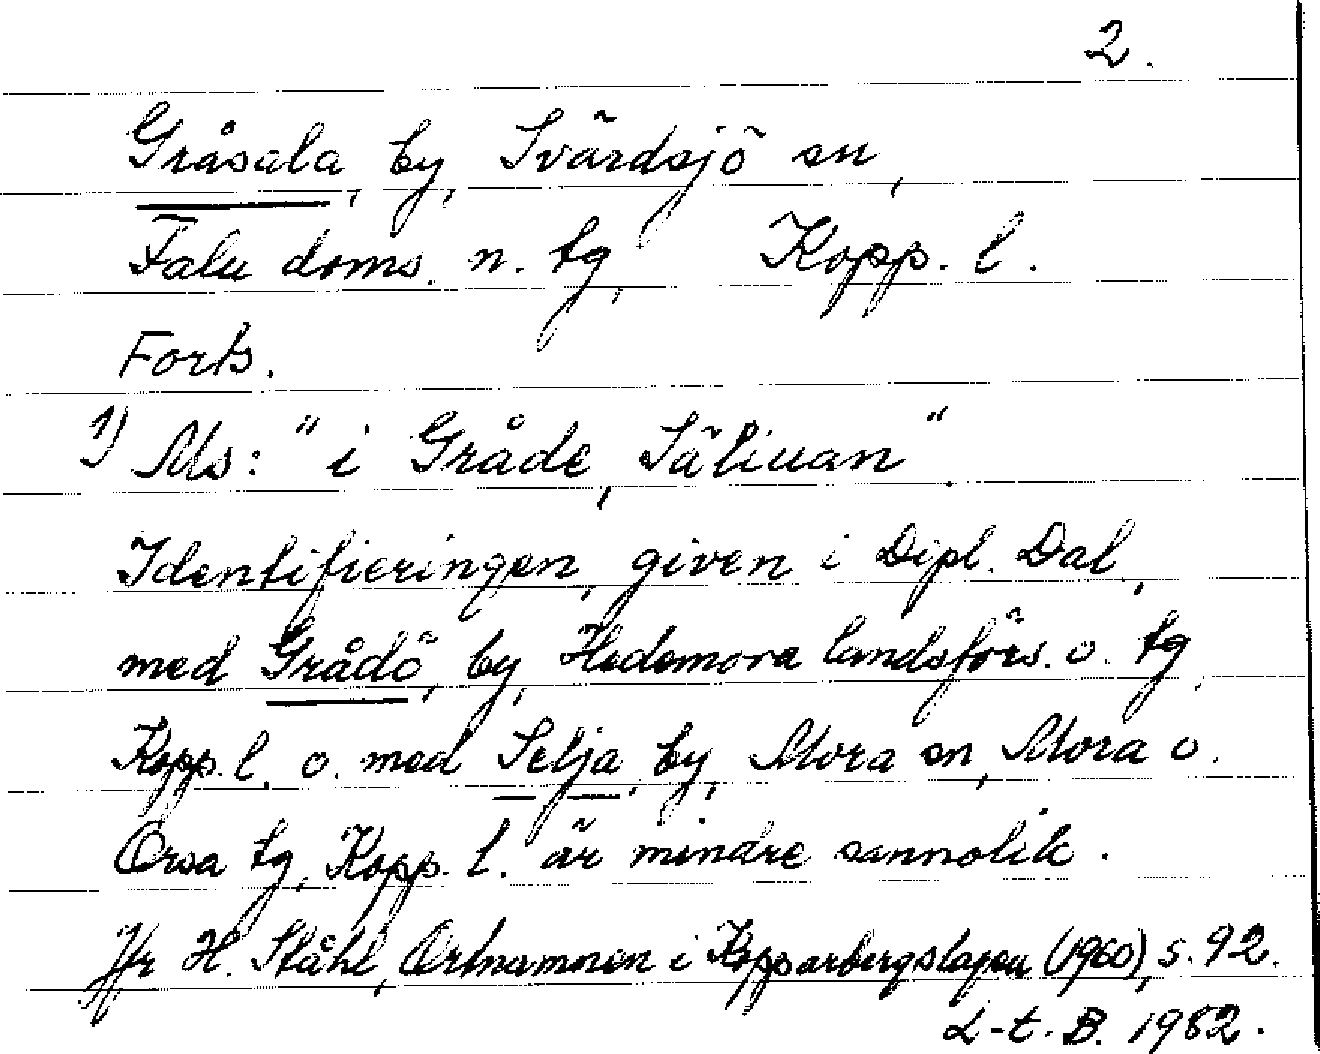 2.
Gråsala, by, Svärdsjö sn,
Falu doms. n. tg, Kopp. l.
Forts.
1) Ms: "i Gråde, Säliuan".
Identifieringen, given i Dipl. Dal.,
med Grådö, by, Hedemora landsförs. o. tg,
Kopp. l. o. med Selja, by, Mora sn, Mora o.
Orsa tg, Kopp. l. är mindre sannolik.
Jfr H. Ståhl, Ortnamnen i Kopparbergslagen (1960), s. 92.
L-t. B. 1982.